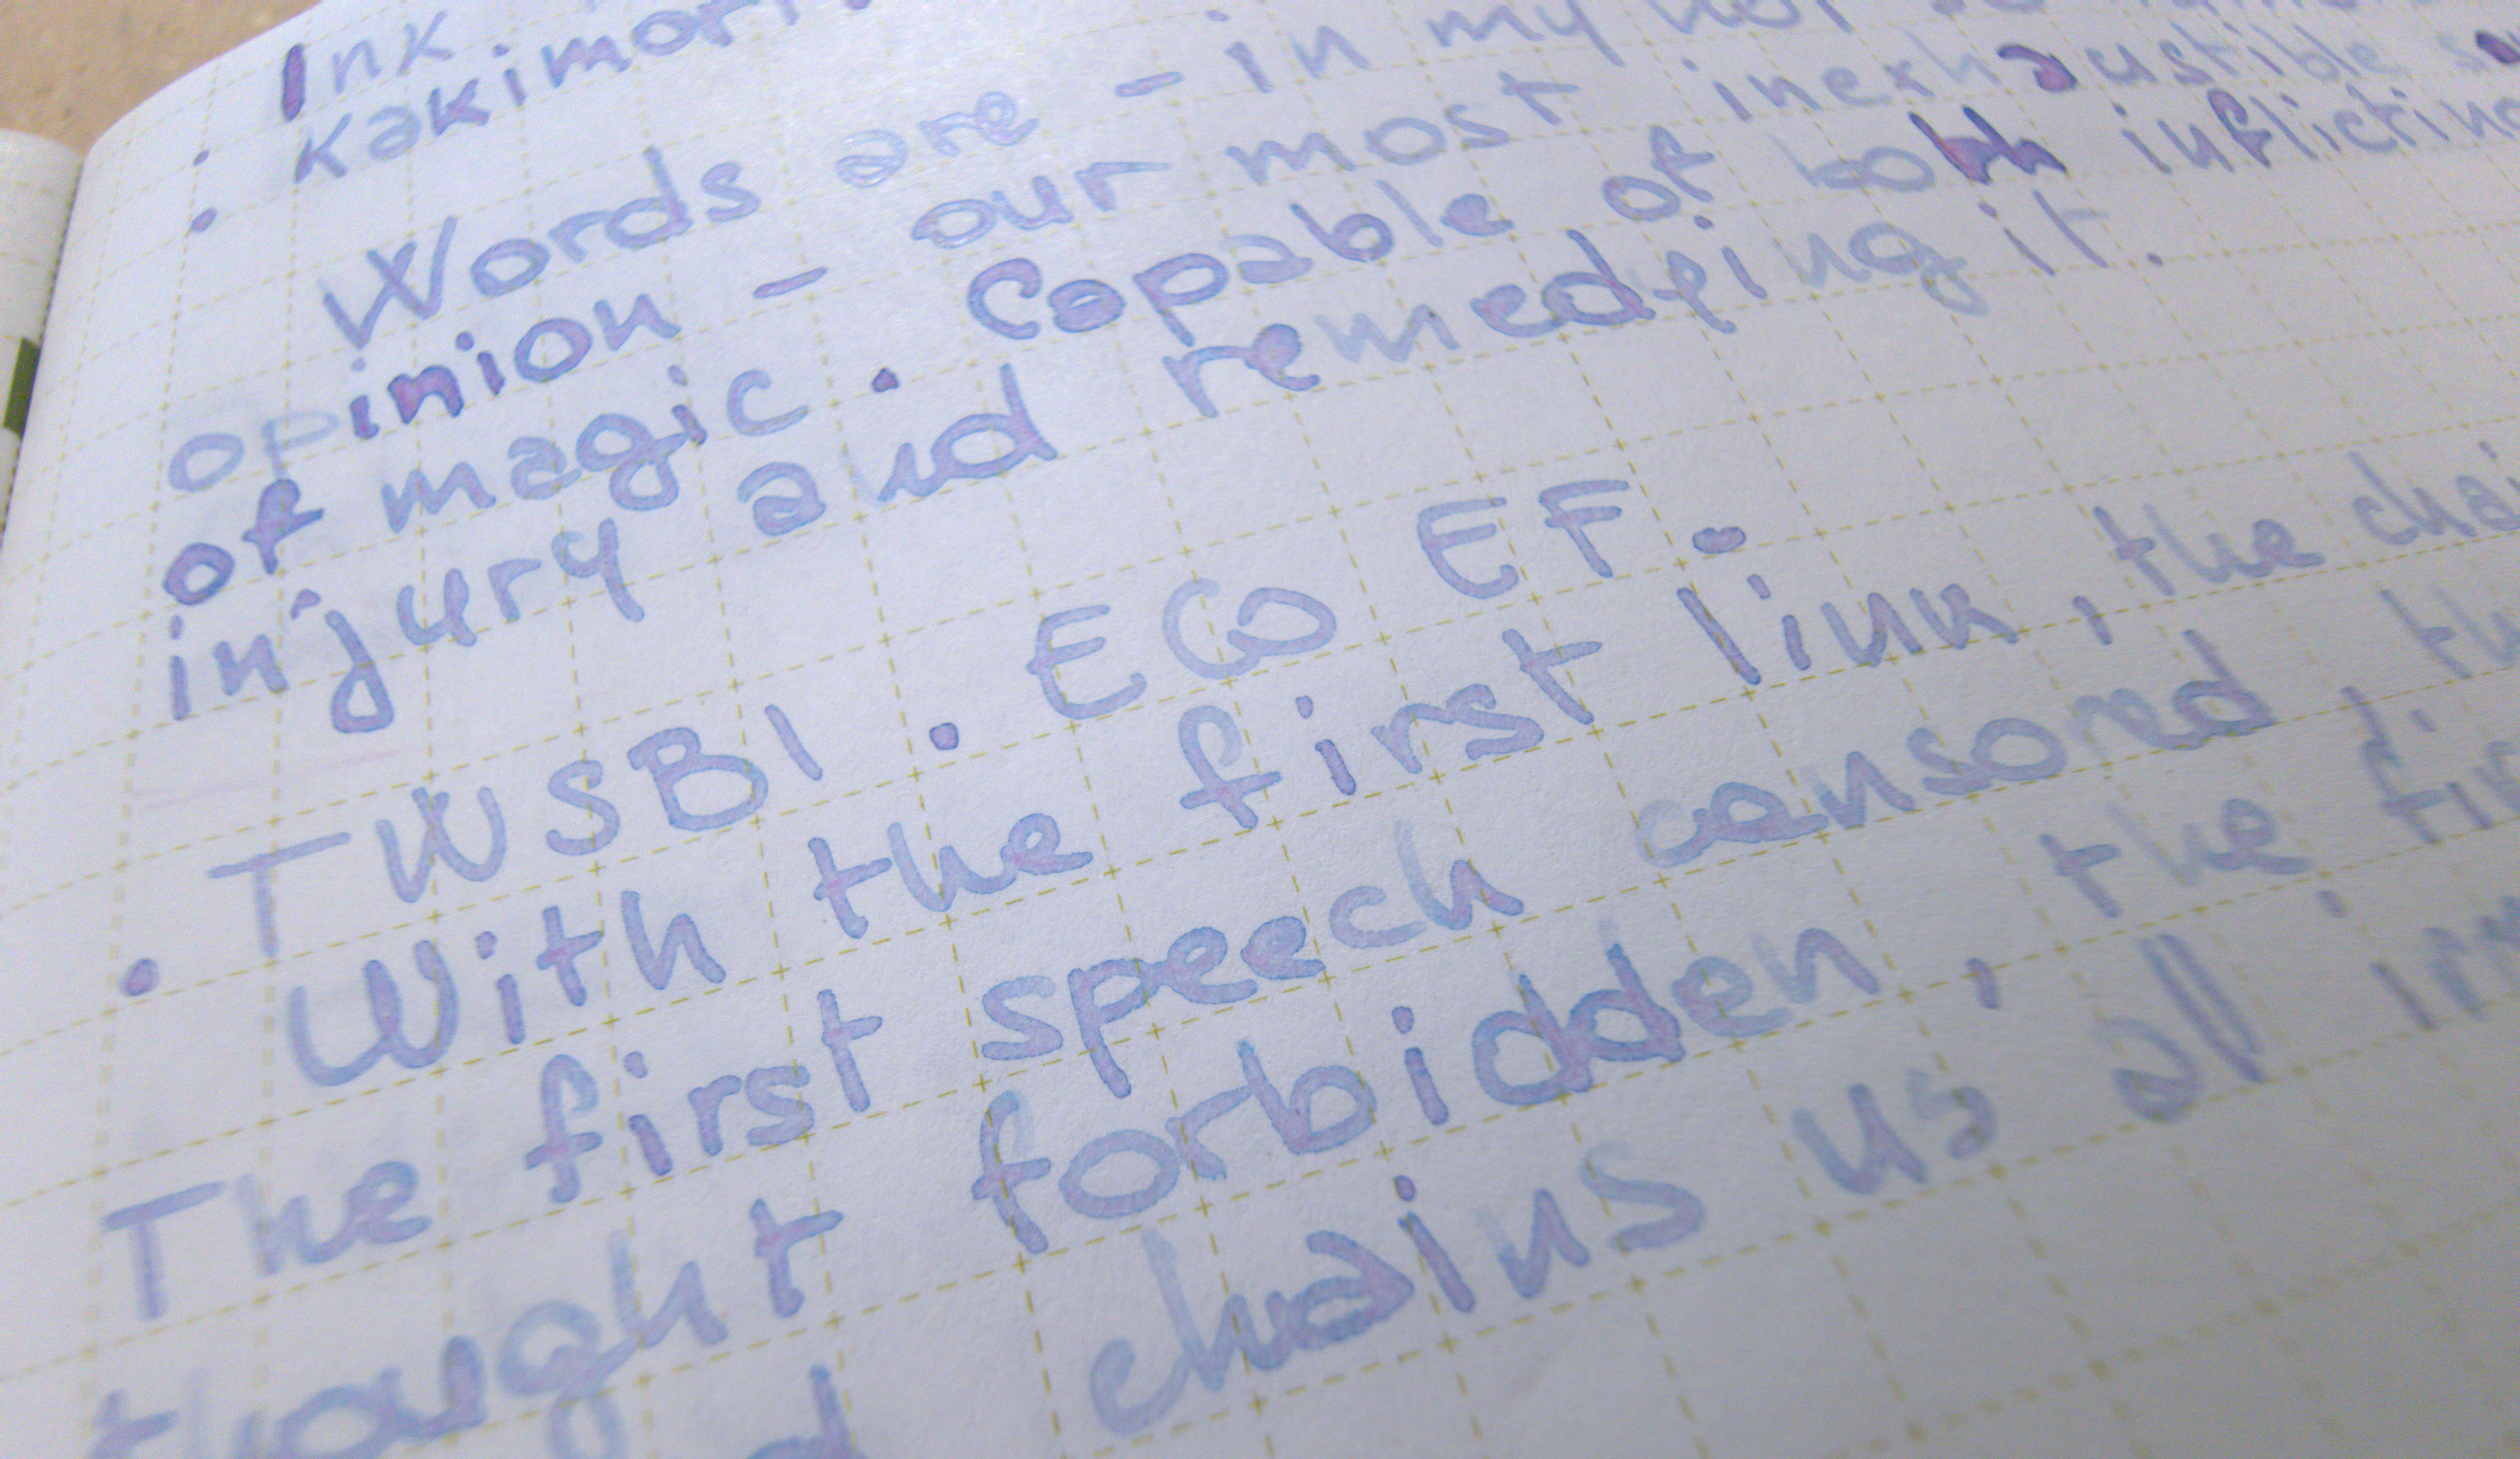 Ink
• Kakimori
• Words are - in my not so
opinion - our most inexhaustible
of magic. Capable of both inflicting
injury and remedying it.
• TWSBI. ECO EF.
With the first link, the
The first speech censored, the
thought forbidden, the
chains us all